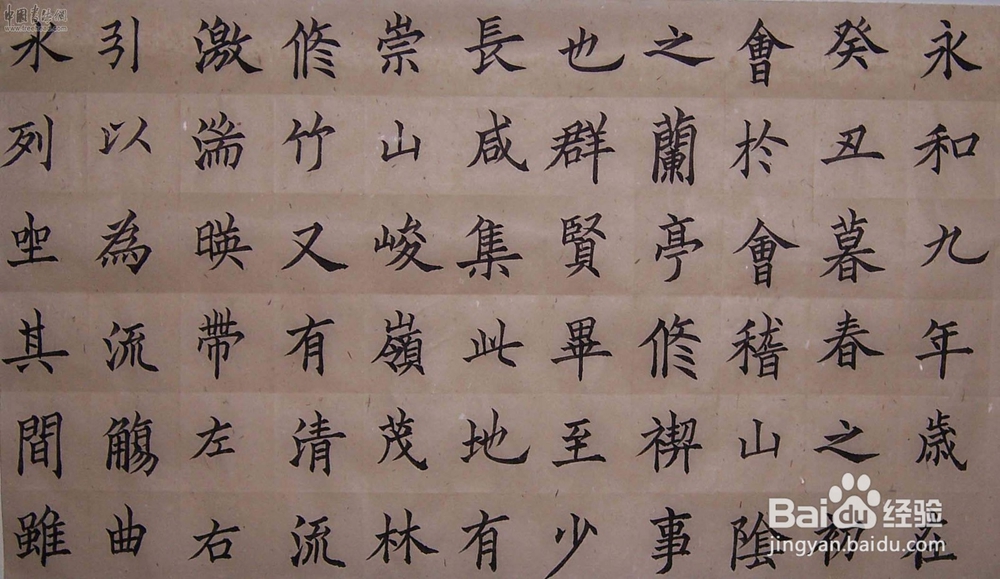 永和九年歲在
癸丑暮春之初
會於會稽山陰
之蘭亭修禊事
也群賢畢至少
長咸集此地有
崇山峻嶺茂林
修竹又有清流
激湍暎帶左右
引以為流觴曲
水列坐其間雖
Baidu 经验
jingyan.baidu.com